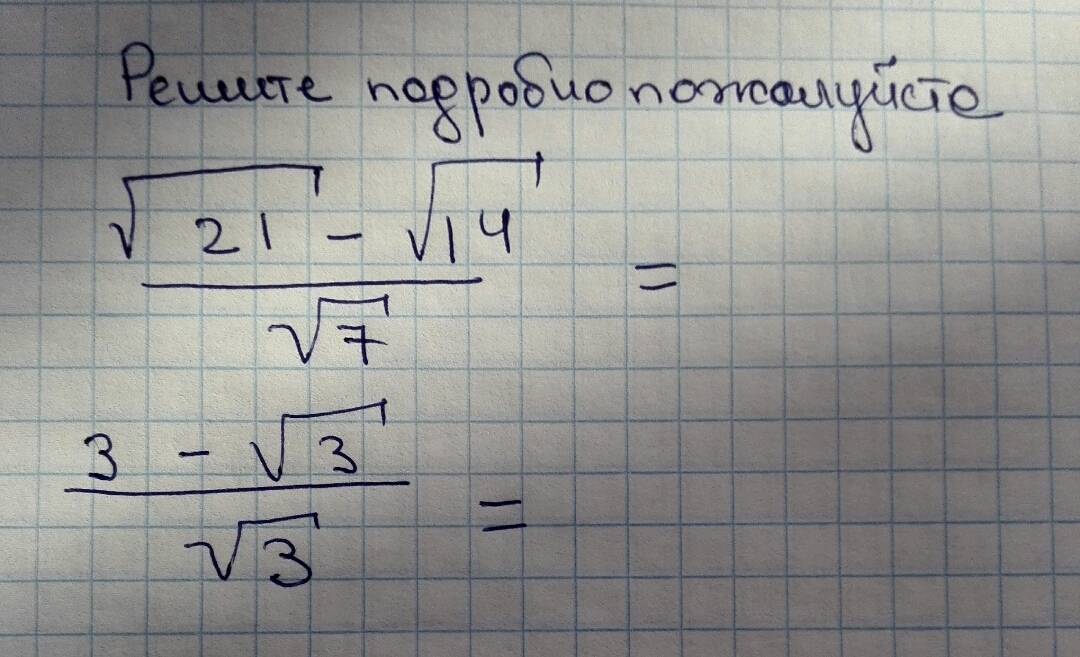 Решите подробно пожалуйста
√21 - √14
=
√7
3 - √3
=
√3